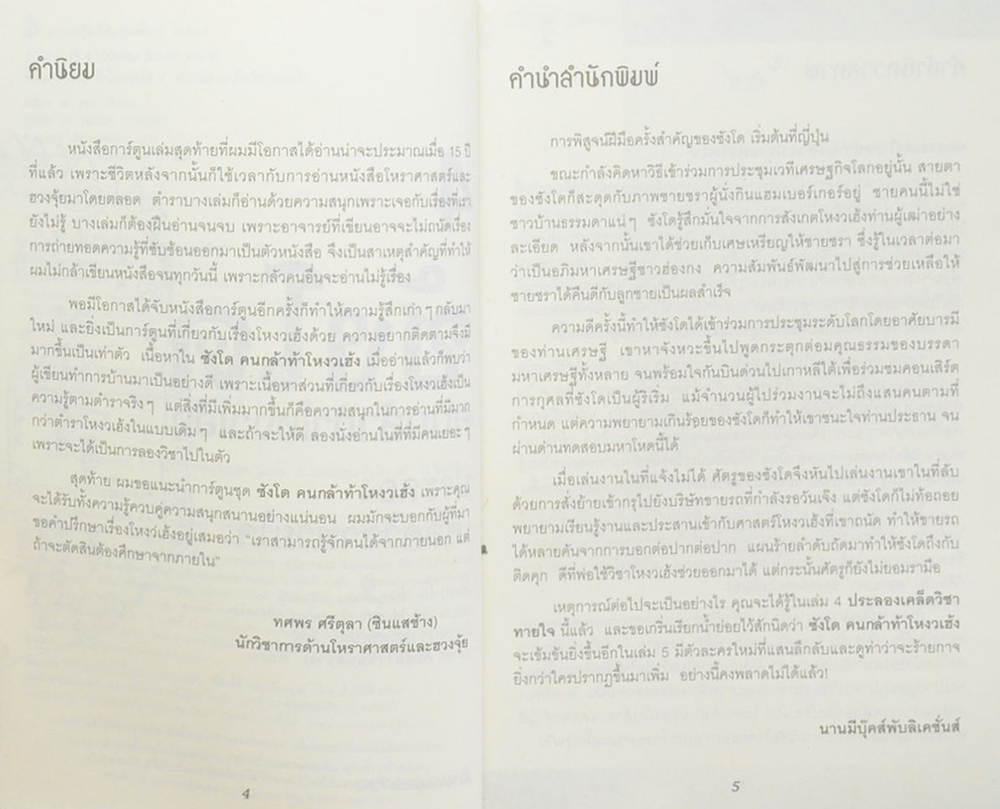 คำนิยม
หนังสือการ์ตูนเล่มสุดท้ายที่ผมมีโอกาสได้อ่านน่าจะประมาณเมื่อ 15 ปี
ที่แล้ว เพราะชีวิตหลังจากนั้นก็ใช้เวลากับการอ่านหนังสือโหราศาสตร์และ
ฮวงจุ้ยมาโดยตลอด ตำราบางเล่มก็อ่านด้วยความสนุกเพราะเจอกับเรื่องที่เรา
ยังไม่รู้ บางเล่มก็ต้องฝืนอ่านจนจบ เพราะอาจารย์ที่เขียนอาจจะไม่ถนัดเรื่อง
การถ่ายทอดความรู้ที่ซับซ้อนออกมาเป็นตัวหนังสือ จึงเป็นสาเหตุสำคัญที่ทำให้
ผมไม่กล้าเขียนหนังสือจนทุกวันนี้ เพราะกลัวคนอื่นจะอ่านไม่รู้เรื่อง
พอมีโอกาสได้จับหนังสือการ์ตูนอีกครั้งก็ทำให้ความรู้สึกเก่าๆ กลับมา
ใหม่ และยิ่งเป็นการ์ตูนที่เกี่ยวกับเรื่องโหงวเฮ้งด้วย ความอยากติดตามจึงมี
มากขึ้นเป็นเท่าตัว เนื้อหาใน ซังโด คนกล้าท้าโหงวเฮ้ง เมื่ออ่านแล้วก็พบว่า
ผู้เขียนทำการบ้านมาเป็นอย่างดี เพราะเนื้อหาส่วนที่เกี่ยวกับเรื่องโหงวเฮ้งเป็น
ความรู้ตามตำราจริงๆ แต่สิ่งที่มีเพิ่มมากขึ้นก็คือความสนุกในการอ่านที่มีมาก
กว่าตำราโหงวเฮ้งในแบบเดิมๆ และถ้าจะให้ดี ลองนั่งอ่านในที่ที่มีคนเยอะๆ
เพราะจะได้เป็นการลองวิชาไปในตัว
สุดท้าย ผมขอแนะนำการ์ตูนชุด ซังโด คนกล้าท้าโหงวเฮ้ง เพราะคุณ
จะได้รับทั้งความรู้ควบคู่ความสนุกสนานอย่างแน่นอน ผมมักจะบอกกับผู้ที่มา
ขอคำปรึกษาเรื่องโหงวเฮ้งอยู่เสมอว่า "เราสามารถรู้จักคนได้จากภายนอก แต่
ถ้าจะตัดสินต้องศึกษาจากภายใน"
ทศพร ศรีตุลา (ซินแสช้าง)
นักวิชาการด้านโหราศาสตร์และฮวงจุ้ย
4
คำนำสำนักพิมพ์
การพิสูจน์ฝีมือครั้งสำคัญของซังโด เริ่มต้นที่ญี่ปุ่น
ขณะกำลังคิดหาวิธีเข้าร่วมการประชุมเวทีเศรษฐกิจโลกอยู่นั้น สายตา
ของซังโดก็สะดุดกับภาพชายชราผู้นั่งกินแฮมเบอร์เกอร์อยู่ ชายคนนี้ไม่ใช่
ชาวบ้านธรรมดาแน่ๆ ซังโดรู้สึกมั่นใจจากการสังเกตโหงวเฮ้งท่านผู้เฒ่าอย่าง
ละเอียด หลังจากนั้นเขาได้ช่วยเก็บเศษเหรียญให้ชายชรา ซึ่งรู้ในเวลาต่อมา
ว่าเป็นอภิมหาเศรษฐีชาวฮ่องกง ความสัมพันธ์พัฒนาไปสู่การช่วยเหลือให้
ชายชราได้คืนดีกับลูกชายเป็นผลสำเร็จ
ความดีครั้งนี้ทำให้ซังโดได้เข้าร่วมการประชุมระดับโลกโดยอาศัยบารมี
ของท่านเศรษฐี เขาหาจังหวะขึ้นไปพูดกระตุกต่อมคุณธรรมของบรรดา
มหาเศรษฐีทั้งหลาย จนพร้อมใจกันบินด่วนไปเกาหลีใต้เพื่อร่วมชมคอนเสิร์ต
การกุศลที่ซังโดเป็นผู้ริเริ่ม แม้จำนวนผู้ไปร่วมงานจะไม่ถึงแสนคนตามที่
กำหนด แต่ความพยายามเกินร้อยของซังโดก็ทำให้เขาชนะใจท่านประธาน จน
ผ่านด่านทดสอบมหาโหดนี้ได้
เมื่อเล่นงานในที่แจ้งไม่ได้ ศัตรูของซังโดจึงหันไปเล่นงานเขาในที่ลับ
ด้วยการสั่งย้ายเข้ากรุไปยังบริษัทขายรถที่กำลังรอวันเจ๊ง แต่ซังโดก็ไม่ท้อถอย
พยายามเรียนรู้งานและประสานเข้ากับศาสตร์โหงวเฮ้งที่เขาถนัด ทำให้ขายรถ
ได้หลายคันจากการบอกต่อปากต่อปาก แผนร้ายลำดับถัดมาทำให้ซังโดถึงกับ
ติดคุก ดีที่พ่อใช้วิชาโหงวเฮ้งช่วยออกมาได้ แต่กระนั้นศัตรูก็ยังไม่ยอมรามือ
เหตุการณ์ต่อไปจะเป็นอย่างไร คุณจะได้รู้ในเล่ม 4 ประลองเคล็ดวิชา
ทายใจ นี้แล้ว และขอเกริ่นเรียกน้ำย่อยไว้สักนิดว่า ซังโด คนกล้าท้าโหงวเฮ้ง
จะเข้มข้นยิ่งขึ้นอีกในเล่ม 5 มีตัวละครใหม่ที่แสนลึกลับและดูท่าว่าจะร้ายกาจ
ยิ่งกว่าใครปรากฏขึ้นมาเพิ่ม อย่างนี้คงพลาดไม่ได้แล้ว!
นานมีบุ๊คส์พับลิเคชั่นส์
5